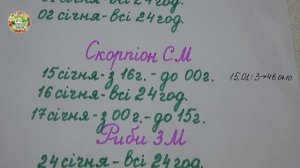 02 січня-всі 24год.
Скорпіон СМ
15 січня-з 16г.-до 00г.
16 січня-всі 24год.
17 січня-з 00г.-до 15г.
Риби ЗМ
24 січня-всі 24год.